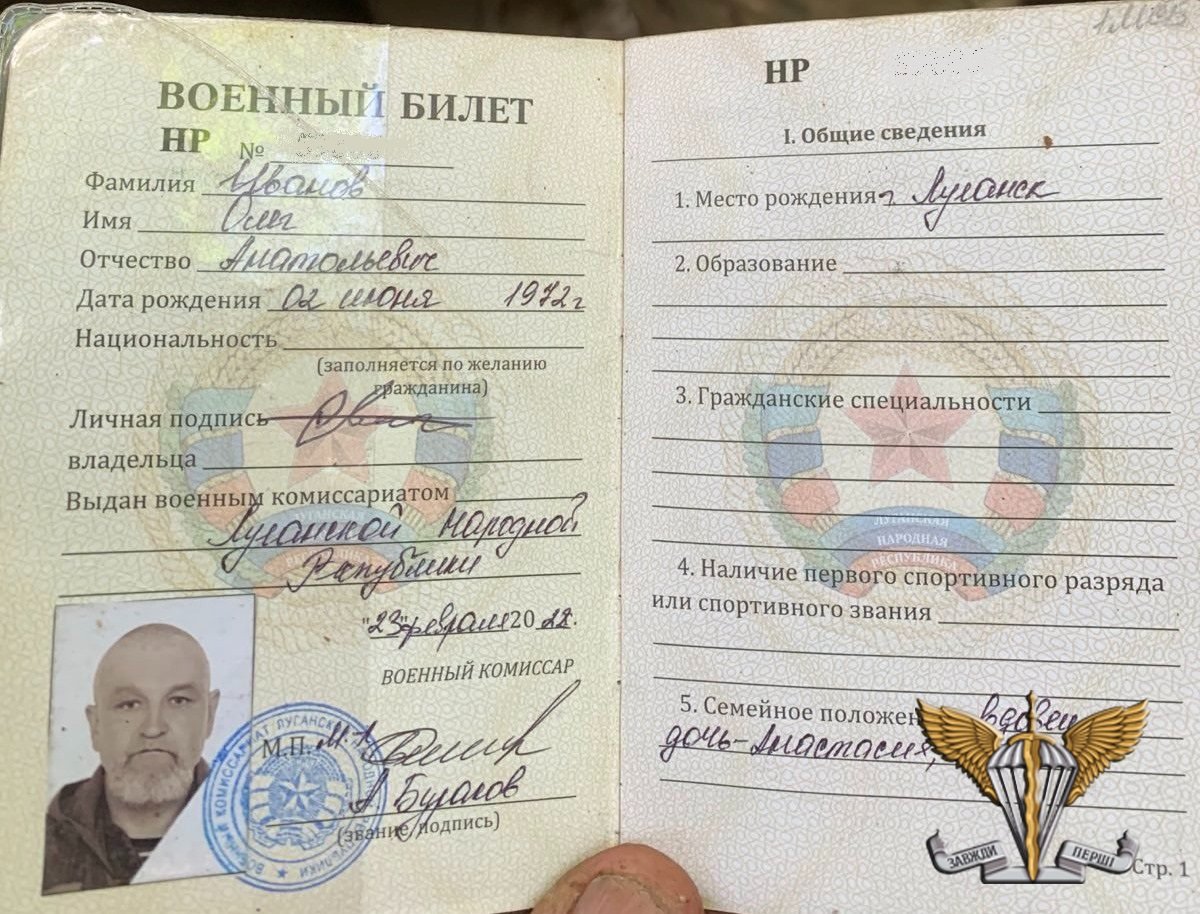 ВОЕННЫЙ БИЛЕТ
НР №
Фамилия Иванов
Имя Олег
Отчество Анатольевич
Дата рождения 02 июня 1972г
Национальность
(заполняется по желанию
гражданина)
Личная подпись
владельца
Выдан военным комиссариатом
Луганской Народной
Республики
"23" февраля 2022г.
ВОЕННЫЙ КОМИССАР
М.П.
А. Бугаков
(звание, подпись)
НР
I. Общие сведения
1. Место рождения г Луганск
2. Образование
3. Гражданские специальности
ЛУГАНСКАЯ
НАРОДНАЯ
РЕСПУБЛИКА
4. Наличие первого спортивного разряда
или спортивного звания
5. Семейное положен вдовец
дочь-Анастасия,
ЗАВЖДИ ПЕРШІ
Стр. 1